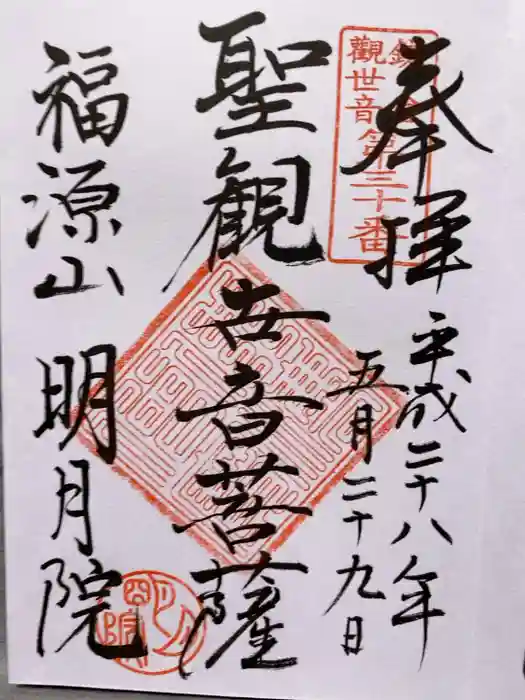 奉拝
平成二十八年
五月二十九日
鎌倉
觀世音第三十番
聖観世音菩薩
福源山
明月院
明月院